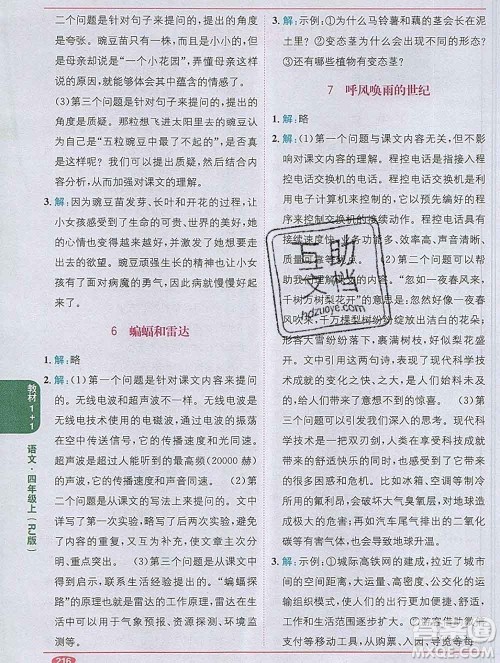 二个问题是针对句子来提问的，提出的角度
是夸张。豌豆苗不过是一小小的，
但是母亲却说“一个小花园”，弄懂母亲这样
说的原因，可以体会其中蕴含的情感。
(3)第三个问题是针对句子来提问的，提出
的角度是质疑。那粒想飞进太阳里去的豌豆为
什么是“五粒豌豆中最了不起的”，是真的
吗？可以提出质疑，然后进行分析。这个问
题可以加强对课文的理解。
3. 解：因为豌豆苗发芽、长叶和开花的过程，让
小女孩感受到了生命的可贵、世界的美好，她
的心情也变得越来越好，并激发了她想走出
去的欲望。豌豆顽强的精神也让小女
孩有了面对病魔的勇气，因此就慢慢好起
来了。
6 蝙蝠和雷达
1. 解：略
2. 解：(1)第一个问题是针对课文内容来提问
的。无线电波和超声波不一样，无线电波是
无线电技术使用的电磁波，由无线电台发出
在空中传送信号，它的传播速度和光同速。
超声波是超过人能听到的最高频(20000 赫)
的声波，它的传播速度与声速相同。(2)第
二个问题是从课文的写法上来提问的。课文
详写了第一次实验，略写了后两次实验，这样
能避免内容的重复，又可以互相映衬，详略得
当，重点突出。(3)第三个问题是从得到的启
示来提问的，联系生活实际，“蝙蝠探
路”的原理也就是雷达的工作原理，雷达的用
途非常广，可用于气象预报、资源探测、环境
监测等。
3. 解：示例：①为什么马铃薯和藕的茎会长在泥
土里？②变态茎为什么会出现不同的形态？
③还有哪些植物有变态茎？
7 呼风唤雨的世纪
1. 解：略
2. 解：(1)第一个问题与课文内容无关，但不影
响对课文内容的理解。程控电话是指接入程
控电话交换机的电话，程控电话交换机是利
用电子计算机来控制的交换机，它以预先编好的程
序来控制交换机的接续动作。程控电话具有
接续速度快、业务功能多、效率高、声音清晰、
质量可靠等优点。(2)第二个问题可以帮助
我们理解课文内容。“忽如一夜春风来，
千树万树梨花开”的意思是：好像一夜之间
春风吹来，千万棵梨树纷纷绽放，
形容大雪纷飞、银装素裹、裹满树枝，好
看极了。文中引用这两句诗，表明了现代科学技术
的发展非常迅速，就像一夜之间开始的
一样令人目不暇接。(3)第三个问题与课文内
容有关，可以引发我们深入的思考。现代科
学技术的发展是一把双刃剑，它给人类带来
美好生活的同时，也会造成环境污染和对人
体健康的危害。例如：冰箱和空调等制冷设备
的氟利昂，会破坏大气臭氧层，对环境造成
很大的破坏；再如汽车尾气排出的二氧化
碳等有害气体，会导致温室效应等。
3. 解：示例：①城际高铁网的建成，拉近了城市
间的空间距离，大运量、高密度、公交化的运
输组织方式，使城市的时空距离大大缩
短，给人们的出行带来便利。②游客借助微信
支付等移动支付方式，从购票、入园、导
教材1+1
语文·四年级上(RJ版)
216
互助
文档
hdzuoye.com
答案圈
MXQE.COM